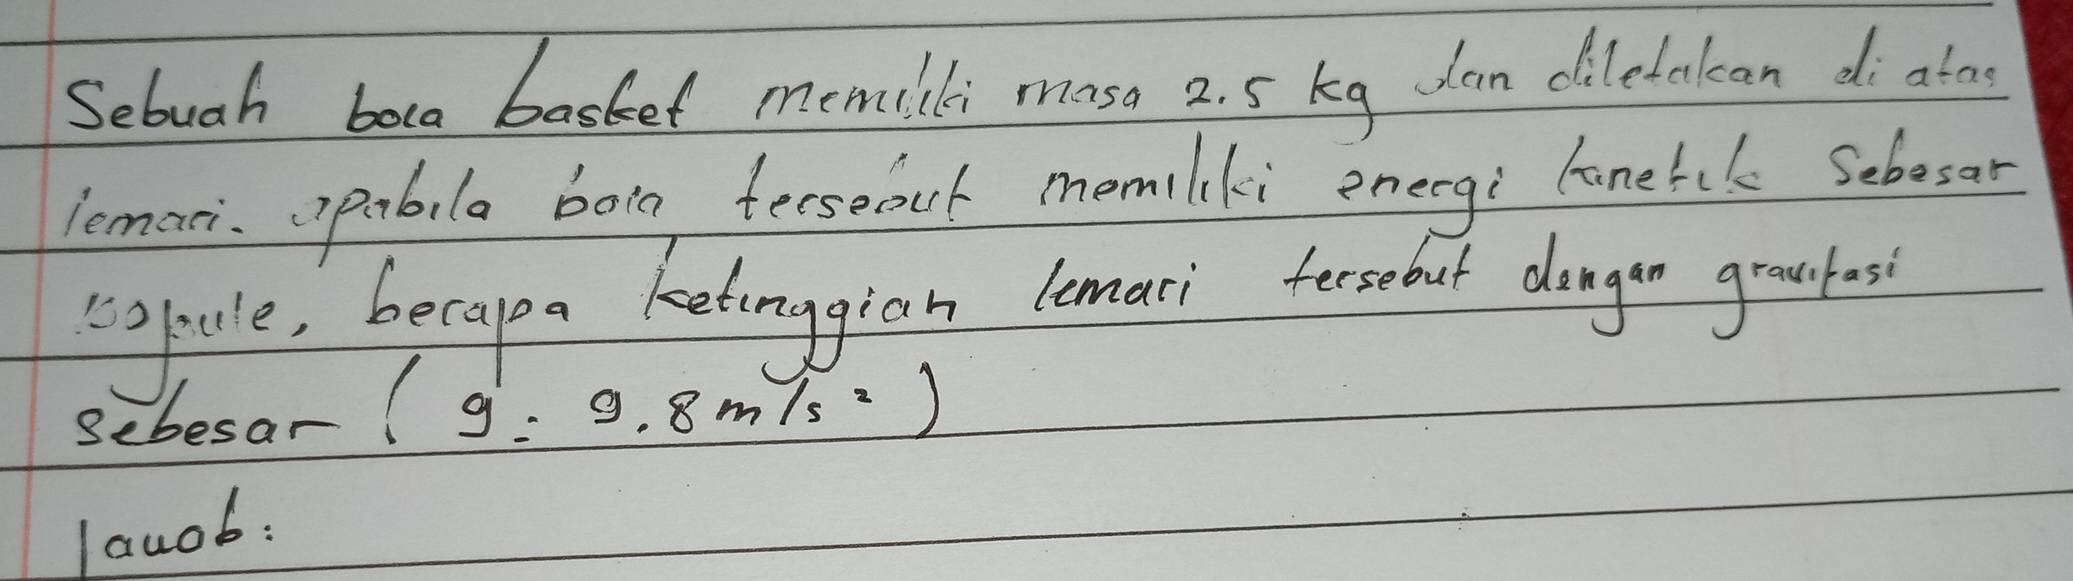 Sebuah bola basket memiliki masa 2.5 kg dan diletakan di atas
lemari. apabila bola tersebut memiliki energi kinetik sebesar
joule, berapa ketinggian lemari tersebut dengan gravitasi
sebesar ( g = 9.8 m/s² )
Jawab: